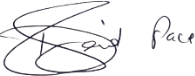 David Pace